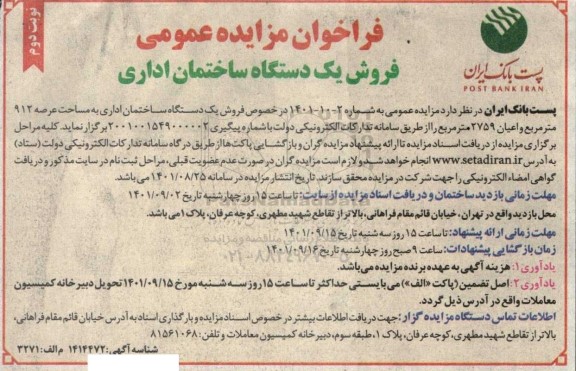 نوبت دوم
فراخوان مزایده عمومی
فروش یک دستگاه ساختمان اداری
پست بانک ایران
POST BANK IRAN
پست بانک ایران در نظر دارد مزایده عمومی به شماره ۲-۱۰-۱۴۰۱ در خصوص فروش یک دستگاه ساختمان اداری به مساحت عرصه ۹۱۲
مترمربع و اعیان ۲۷۵۹ مترمربع را از طریق سامانه تدارکات الکترونیکی دولت با شماره پیگیری ۲۰۰۱۰۰۱۵۴۹۰۰۰۰۰۲ برگزار نماید. کلیه مراحل
برگزاری مزایده از دریافت اسناد مزایده تا ارائه پیشنهاد مزایده گران و بازگشایی پاکت‌ها از طریق درگاه سامانه تدارکات الکترونیکی دولت (ستاد)
به آدرس www.setadiran.ir انجام خواهد شد و لازم است مزایده گران در صورت عدم عضویت قبلی، مراحل ثبت نام در سایت مذکور و دریافت
گواهی امضاء الکترونیکی را جهت شرکت در مزایده محقق سازند. تاریخ انتشار مزایده در سامانه ۱۴۰۱/۰۸/۲۵ می باشد.
مهلت زمانی بازدید ساختمان و دریافت اسناد مزایده از سایت: تا ساعت ۱۵ روز چهارشنبه تاریخ ۱۴۰۱/۰۹/۰۲
محل بازدید واقع در تهران، خیابان قائم مقام فراهانی، بالاتر از تقاطع شهید مطهری، کوچه عرفان، پلاک ۱ می باشد.
مهلت زمانی ارائه پیشنهاد: تا ساعت ۱۵ روز سه شنبه تاریخ ۱۴۰۱/۰۹/۱۵
زمان بازگشایی پیشنهادات: ساعت ۹ صبح روز چهارشنبه تاریخ ۱۴۰۱/۰۹/۱۶
یادآوری ۱: هزینه آگهی به عهده برنده مزایده می باشد.
یادآوری ۲: اصل تضمین (پاکت «الف») می بایستی حداکثر تا ساعت ۱۵ روز سه شنبه مورخ ۱۴۰۱/۰۹/۱۵ تحویل دبیرخانه کمیسیون
معاملات واقع در آدرس ذیل گردد.
اطلاعات تماس دستگاه مزایده گزار: جهت دریافت اطلاعات بیشتر در خصوص اسناد مزایده و بارگذاری اسناد به آدرس خیابان قائم مقام فراهانی،
بالاتر از تقاطع شهید مطهری، کوچه عرفان، پلاک ۱، طبقه سوم، دبیرخانه کمیسیون معاملات و تلفن: ۸۱۵۶۱۰۶۸
شناسه آگهی: ۱۴۱۴۴۷۲ م الف: ۳۲۷۱